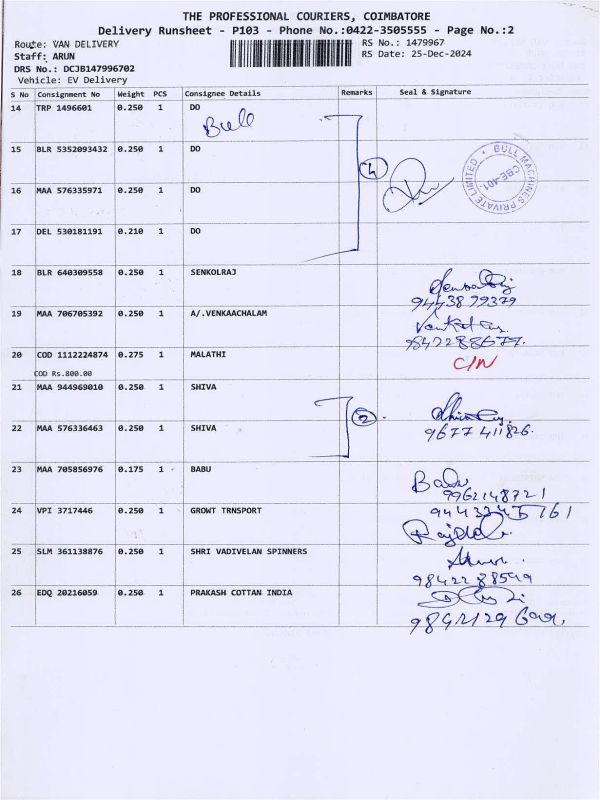 THE PROFESSIONAL COURIERS, COIMBATORE
Delivery Runsheet - P103 - Phone No.:0422-3505555 - Page No.:2
Route: VAN DELIVERY RS No.: 1479967
Staff: ARUN RS Date: 25-Dec-2024
DRS No.: DCJB147996702
Vehicle: EV Delivery
S No Consignment No Weight PCS Consignee Details Remarks Seal & Signature
14 TRP 1496601 0.250 1 DO
Bull
15 BLR 5352093432 0.250 1 DO
BULL MACHINES PRIVATE LIMITED
CBE-401
4
16 MAA 576335971 0.250 1 DO
17 DEL 530181191 0.210 1 DO
18 BLR 640309558 0.250 1 SENKOLRAJ
9443899379
19 MAA 706705392 0.250 1 A/.VENKAACHALAM
9842288677.
20 COD 1112224874 0.275 1 MALATHI C/N
COD Rs.800.00
21 MAA 944969010 0.250 1 SHIVA
2
22 MAA 576336463 0.250 1 SHIVA
9677411826.
23 MAA 705856976 0.175 1 BABU
Babu
9962148721
24 VPI 3717446 0.250 1 GROWT TRNSPORT
25 SLM 361138876 0.250 1 SHRI VADIVELAN SPINNERS
9842288549
26 EDQ 20216059 0.250 1 PRAKASH COTTAN INDIA